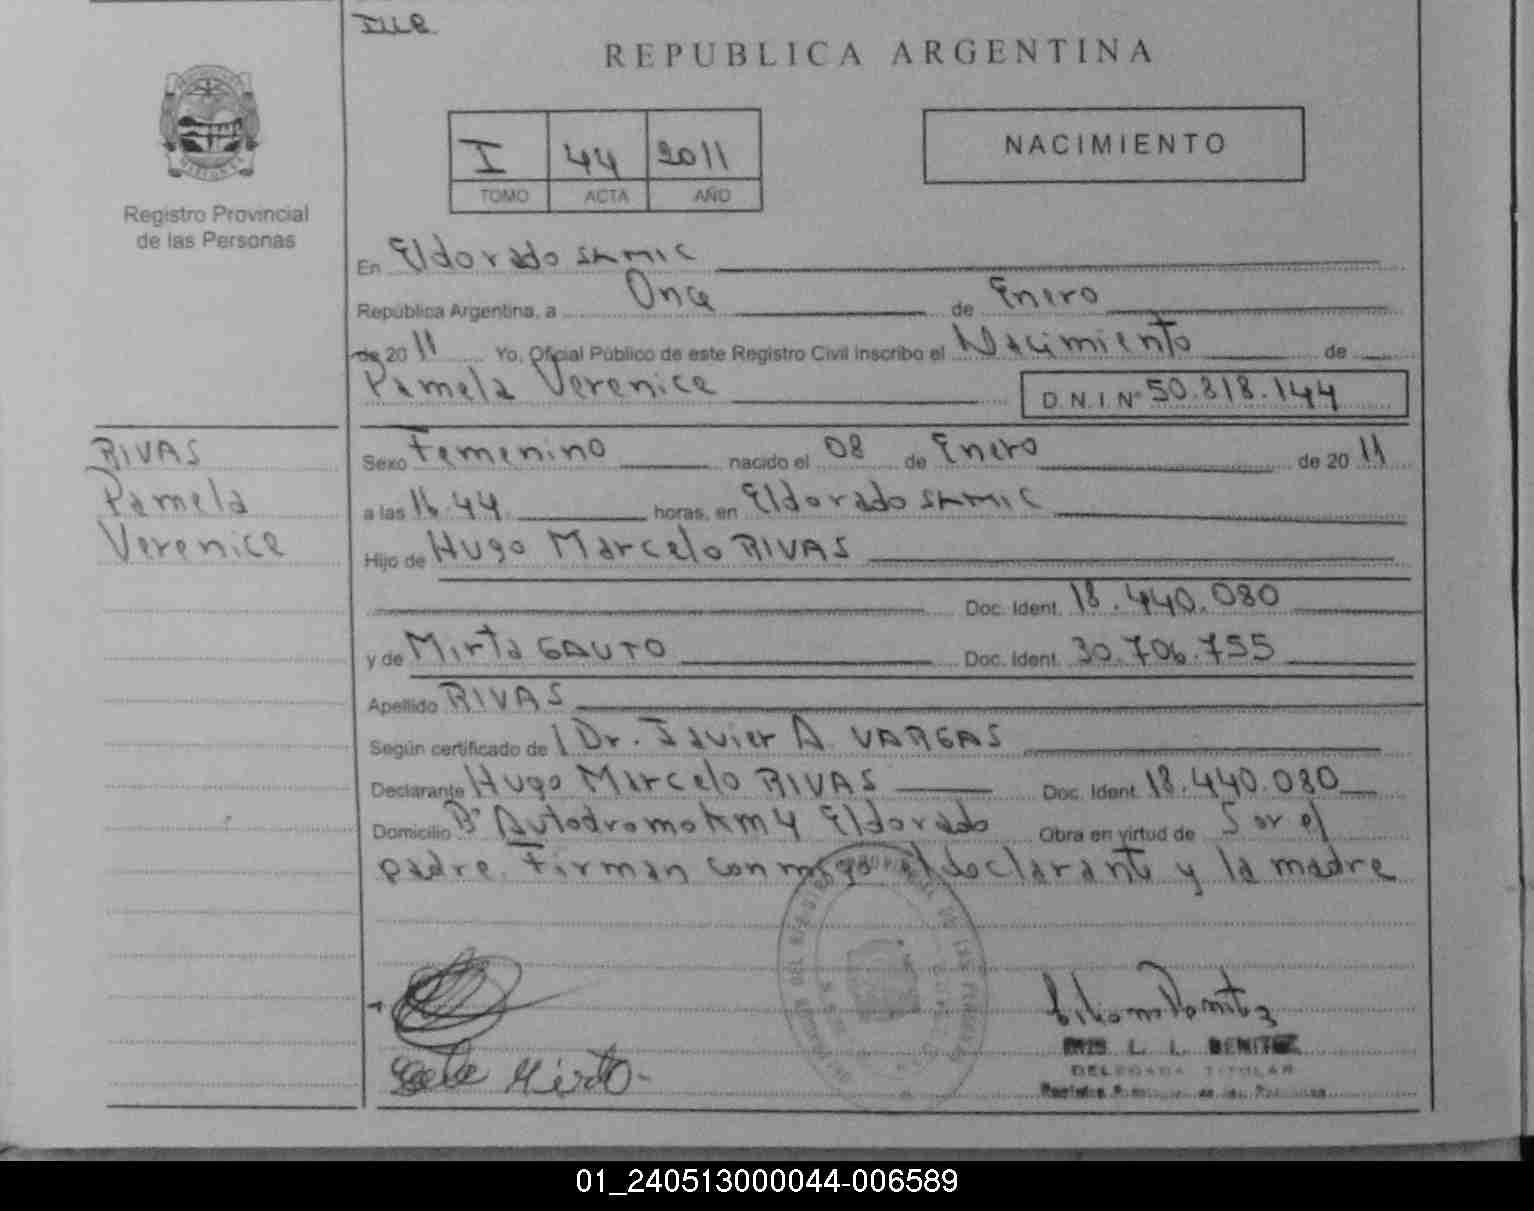 REPUBLICA ARGENTINA
Registro Provincial
de las Personas
I 44 2011
TOMO ACTA AÑO
NACIMIENTO
En Eldorado SAMIC
República Argentina, a Once de Enero
de 20 11 Yo, Oficial Público de este Registro Civil inscribo el Nacimiento de
Pamela Verenice D.N.I. Nº 50.818.144
RIVAS
Pamela
Verenice
Sexo Femenino nacido el 08 de Enero de 20 11
a las 16.44 horas, en Eldorado SAMIC
Hijo de Hugo Marcelo RIVAS
Doc. Ident. 18.440.080
y de Mirta GAUTO Doc. Ident. 30.706.755
Apellido RIVAS
Según certificado de Dr. Javier A. VARGAS
Declarante Hugo Marcelo RIVAS Doc. Ident. 18.440.080
Domicilio Bº Autodromo Km 4 Eldorado Obra en virtud de Ser el
padre. Firman conmigo el declarante y la madre
L. I. BENITEZ
DELEGADA TITULAR
01_240513000044-006589